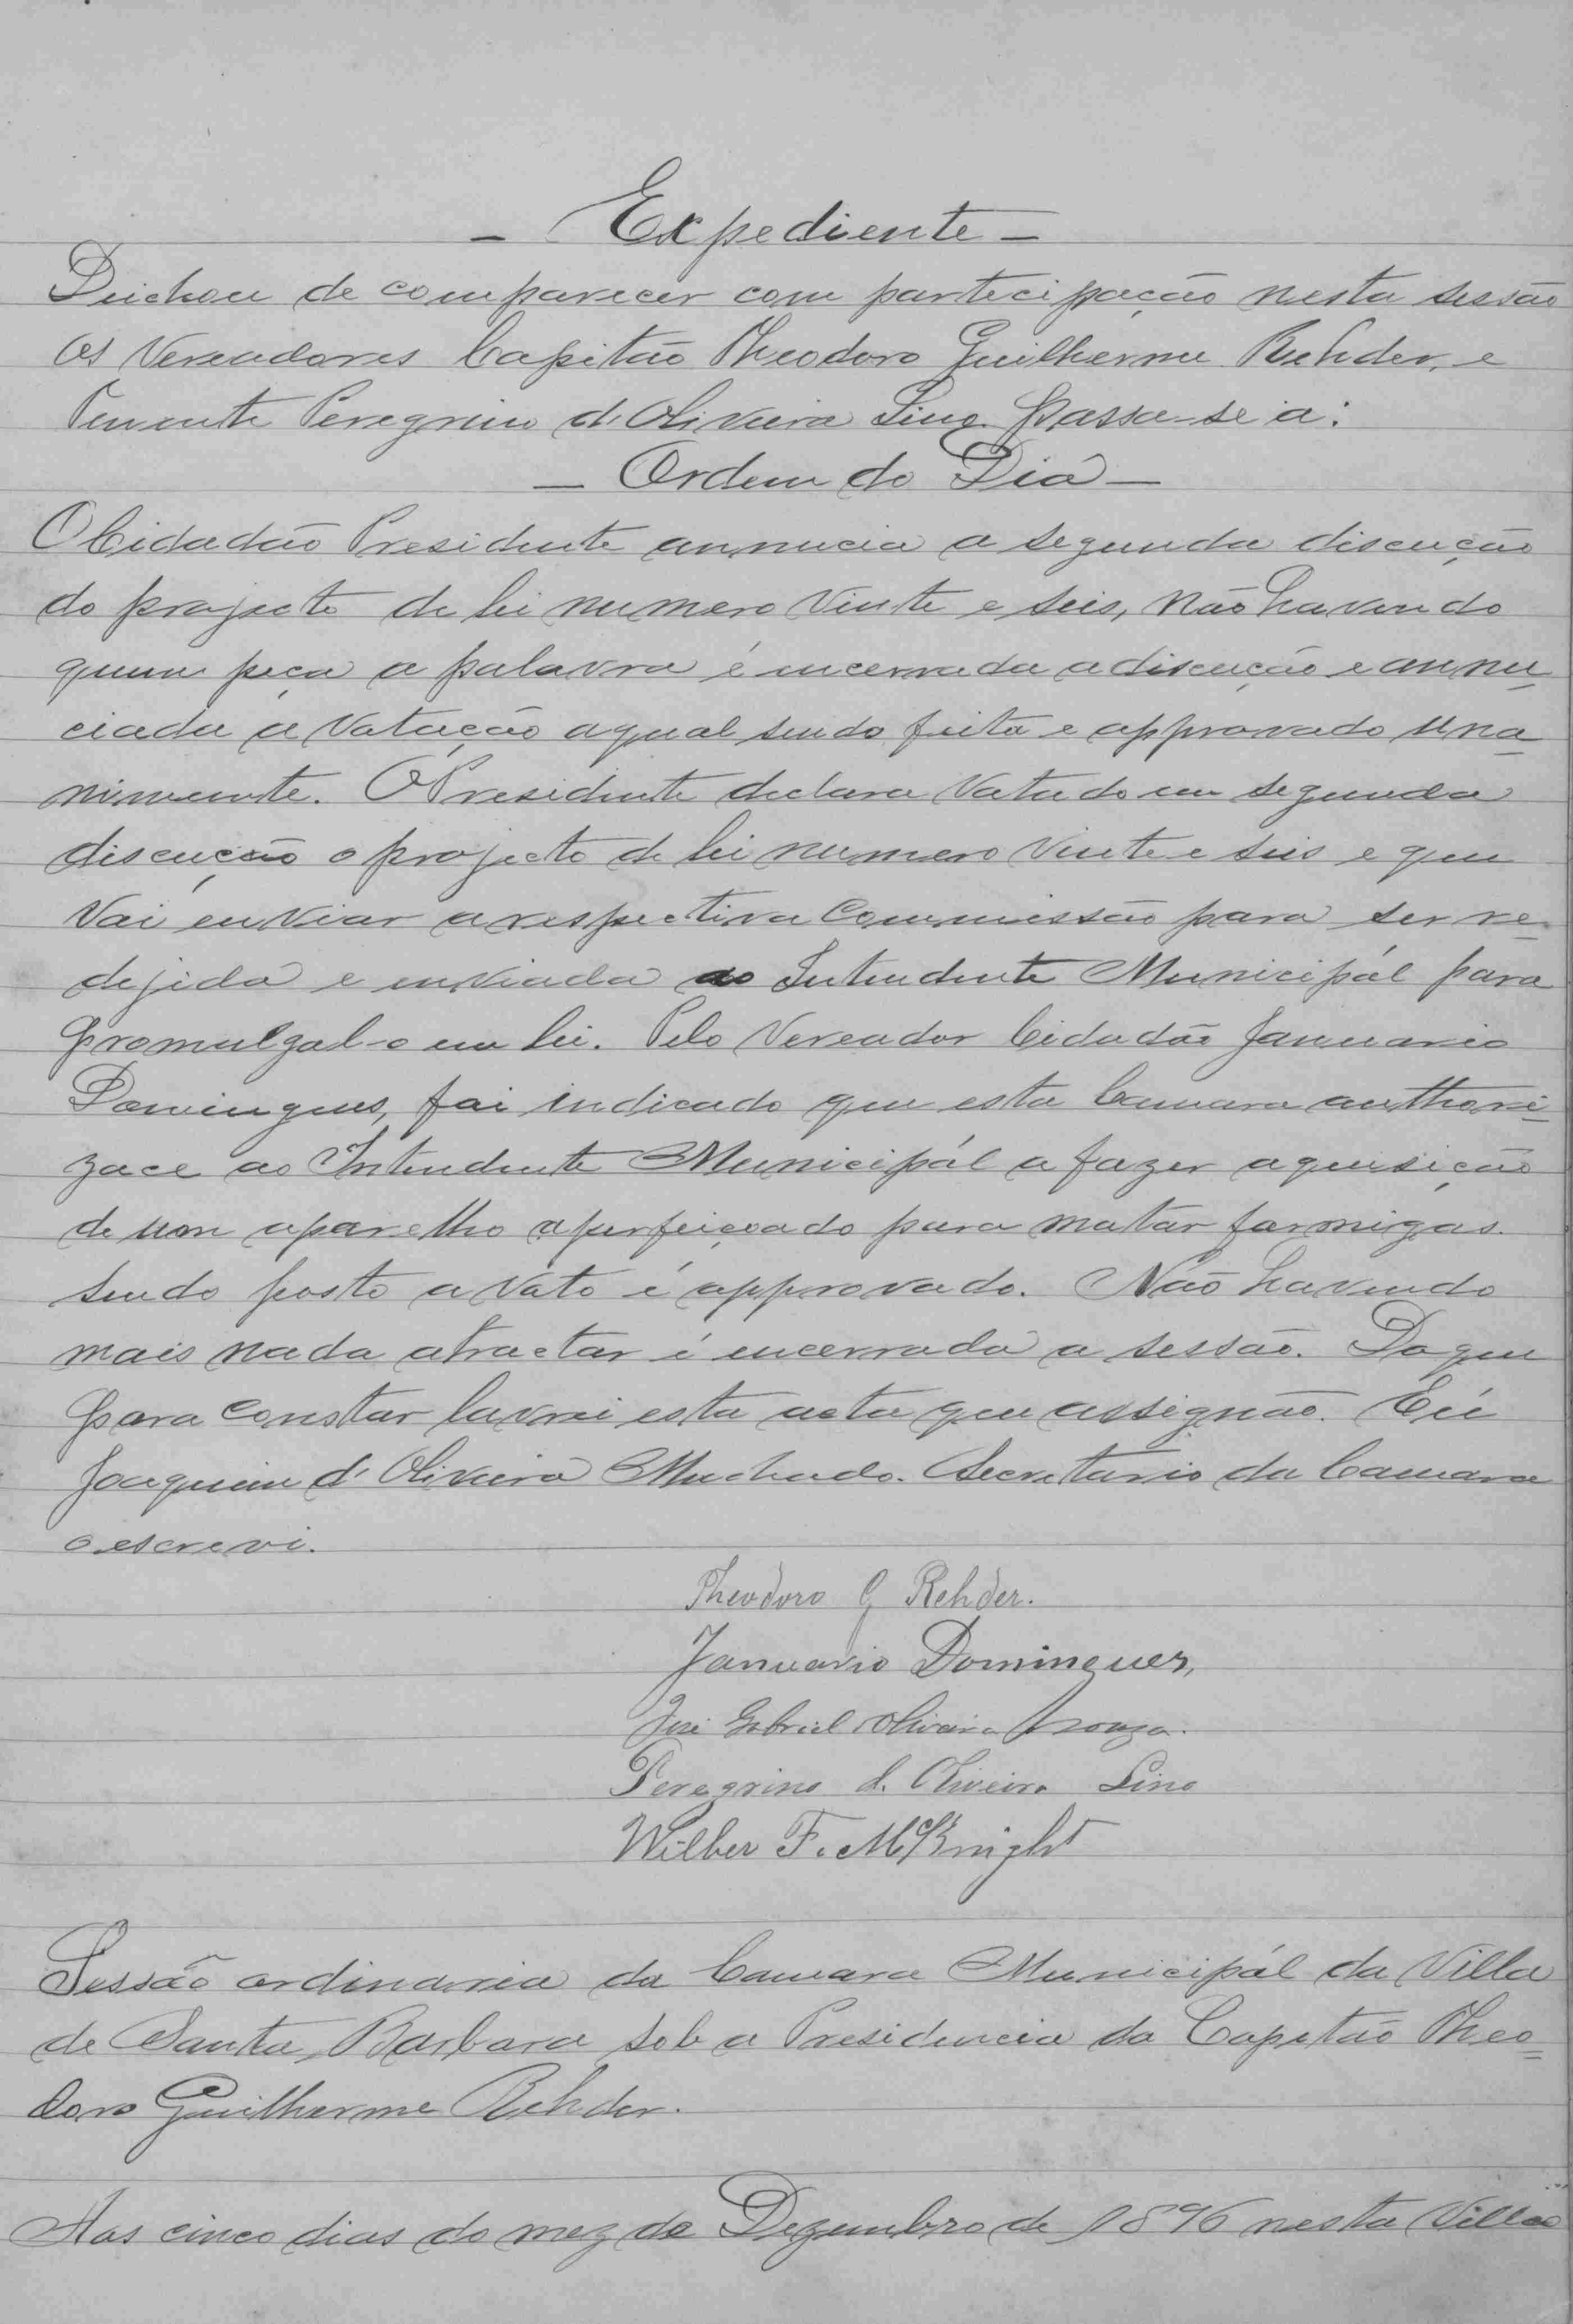 - Expediente -
Deichou de comparecer com partecipação nesta sessão
os Vereadores Capitão Theodoro Guilherme Rehder, e
Tenente Peregrino d'Oliveira Lino. passa-se a:
- Ordem do Dia -
O Cidadão Presidente annucia a segunda discução
do projecto de lei numero vinte e seis, não havendo
quem peça a palavra é encerrada a discução e annu=
ciada a votação a qual sendo feita e approvado una=
nimemente. O Presidente declara votado em segunda
discução o projecto de lei numero vinte e seis e que
vai enviar a respectiva Commissão para ser re=
dejida e enviada ao Intendente Municipál para
promulgal-o em lei. Pelo Vereador Cidadão Januario
Domingues, foi indicado que esta Camara authori=
zace ao Intendente Municipál a fazer aquisição
de um aparelho aperfeiçoado para matar formigas.
sendo posto a voto é approvado. Não havendo
mais nada atractar é encerrada a sessão. Do que
para constar lavrei esta acta que assignão. Eu
Joaquim d'Oliveira Machado. Secretario da Camara
o escrevi.
Theodoro G Rehder.
Januario Domingues,
José Gabriel Oliveira Souza.
Peregrino d. Oliveira Lino
Wilber F. McKnight
Sessão ordinaria da Camara Municipál da Villa
de Santa Barbara sob a Presidencia do Capitão Theo=
doro Guilherme Rehder.
Aos cinco dias do mez de Dezembro de 1896 nesta Villa